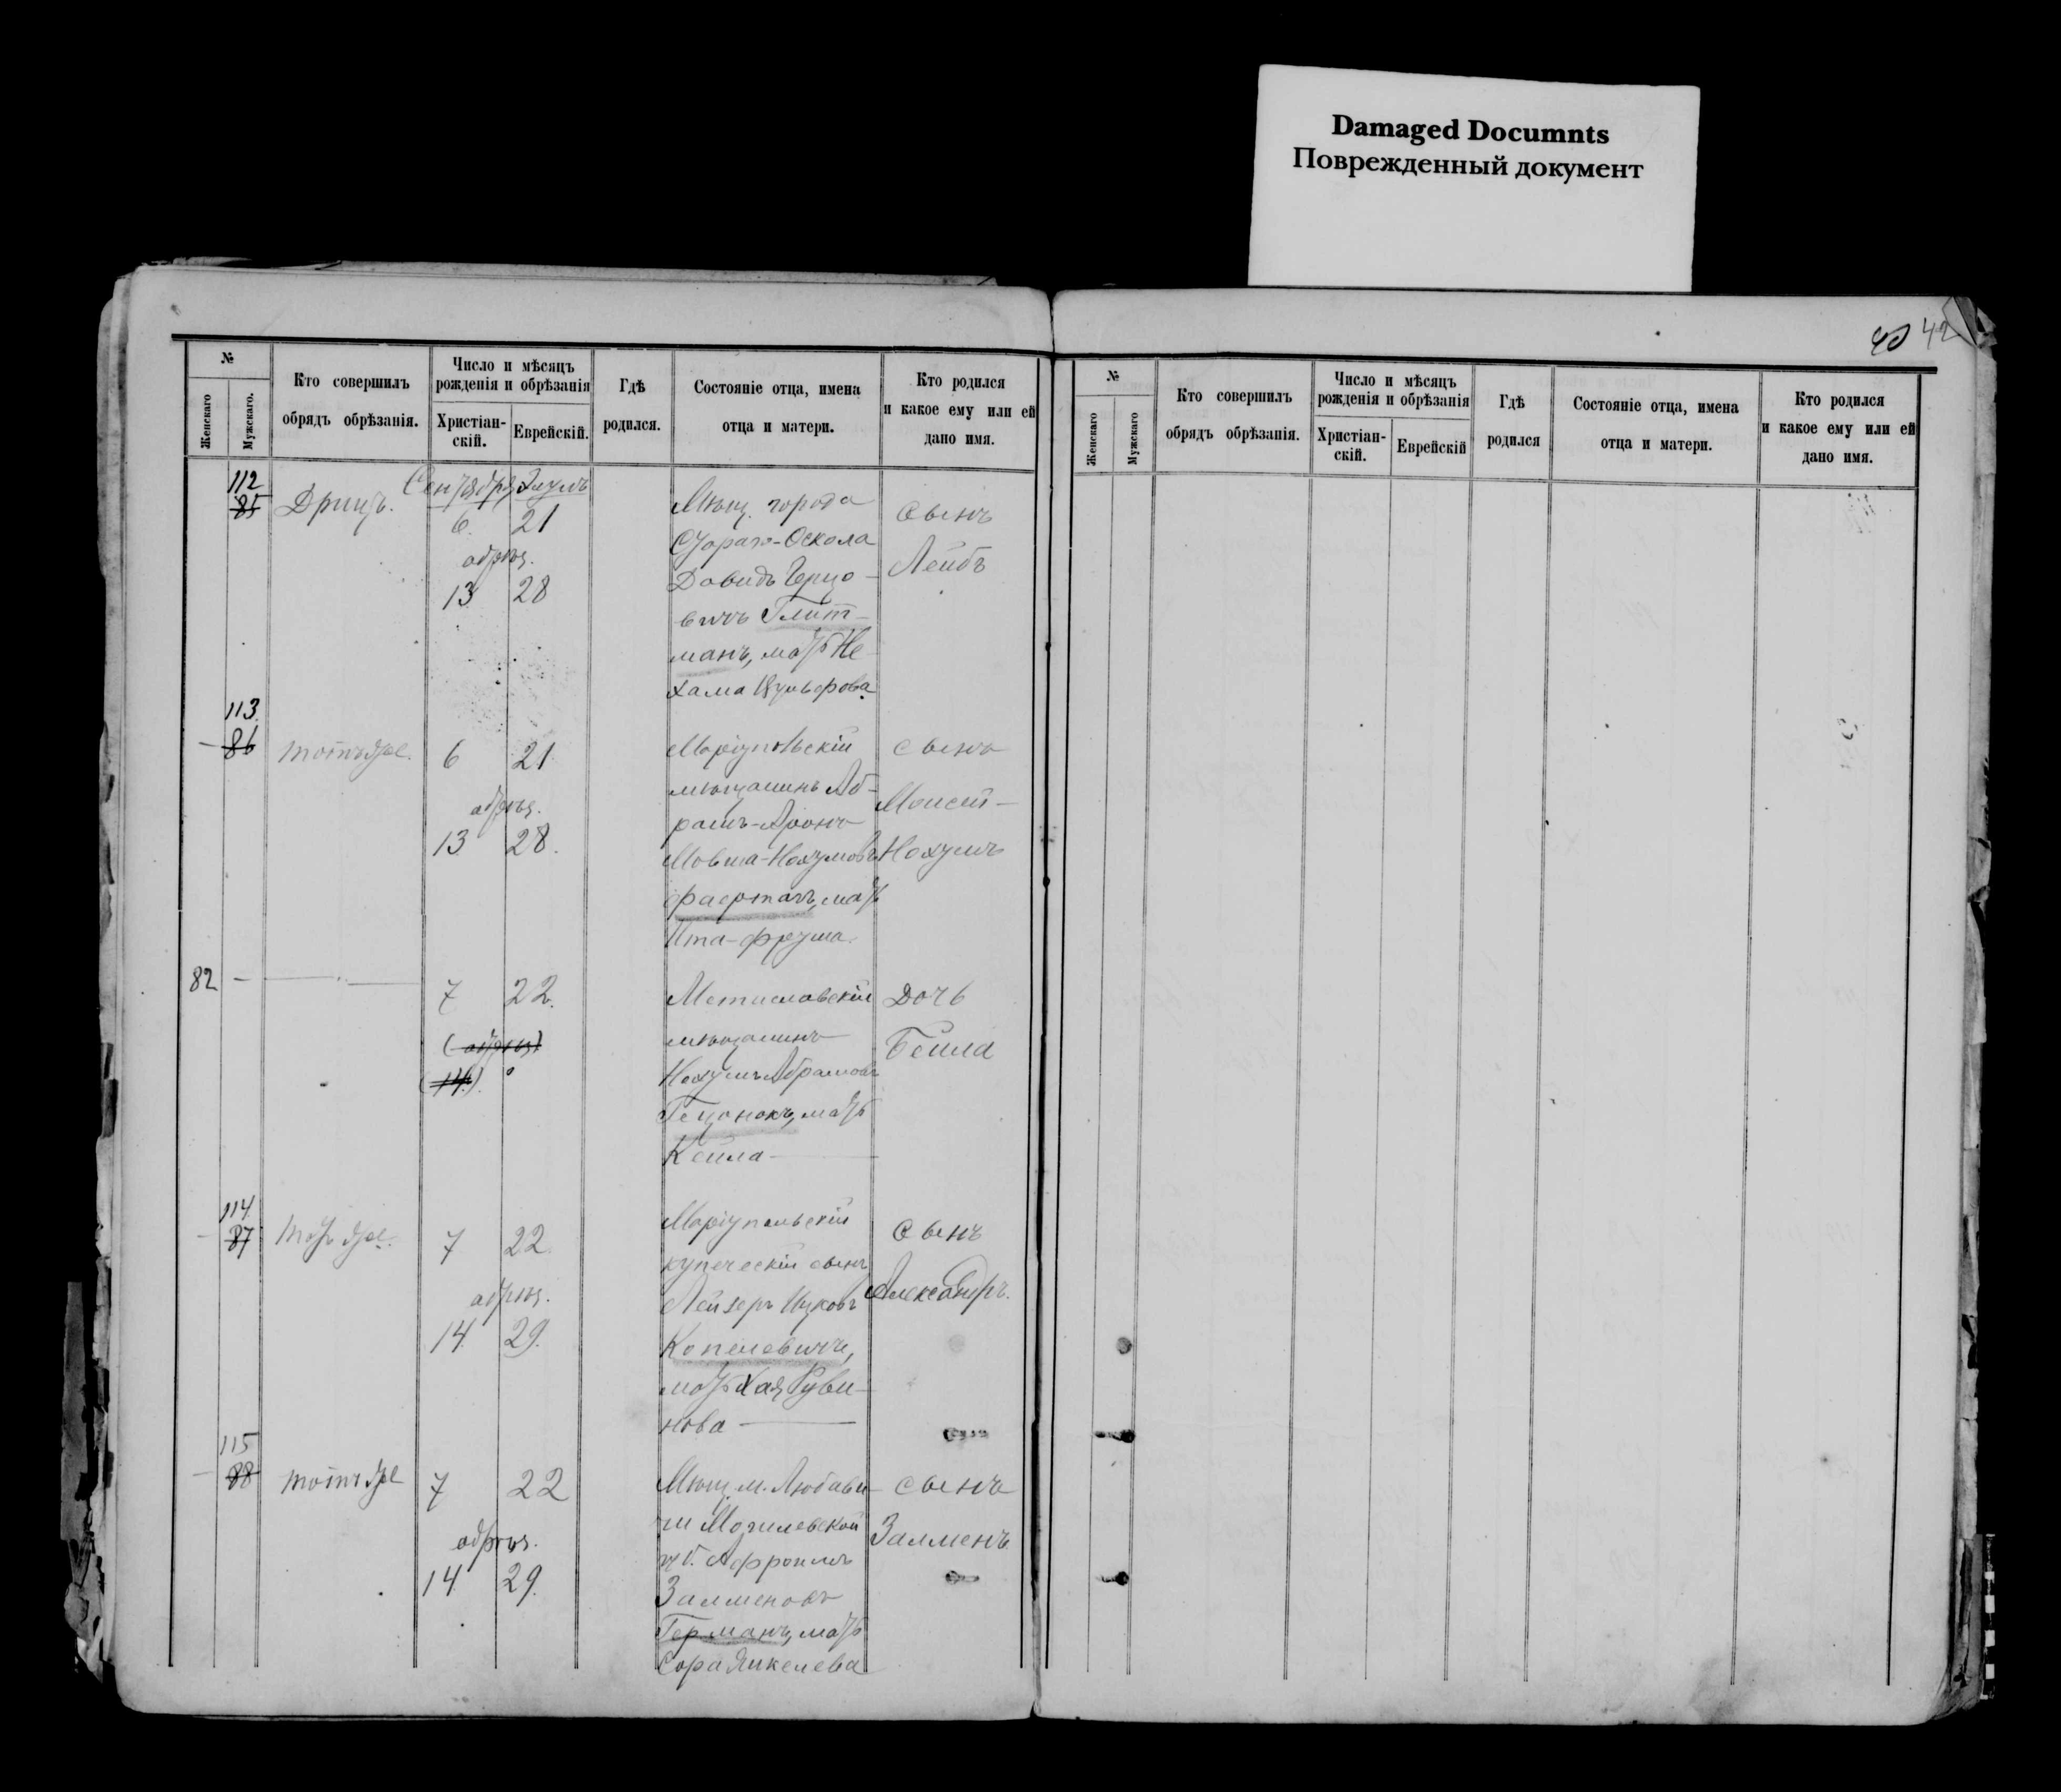 Damaged Documnts
Поврежденный документ
42
№
Женскаго
Мужскаго.
Кто совершилъ
обрядъ обрѣзанія.
Число и мѣсяцъ
рожденія и обрѣзанія
Христіан-
скій.
Еврейскій.
Гдѣ
родился.
Состояніе отца, имена
отца и матери.
Кто родился
и какое ему или ей
дано имя.
№
Женскаго
Мужскаго
Кто совершилъ
обрядъ обрѣзанія.
Число и мѣсяцъ
рожденія и обрѣзанія
Христіан-
скій.
Еврейскій
Гдѣ
родился
Состояніе отца, имена
отца и матери.
Кто родился
и какое ему или ей
дано имя.
112
85
Сентября Элулъ
6 21
обрѣз.
13 28
Мѣщ. города
Стараго-Оскола
Давидъ Герцо-
вичъ Глит-
манъ, мать Не
хама
Сынъ
Лейбъ
113
86
тотъ же.
6 21
обрѣз.
13 28.
Маріупольскій
мѣщанинъ Аб-
рамъ-Аронъ
Мовша-Нохумовъ
мать
Ита-Фрума.
Сынъ
Моисей-
Нохумъ
82
7 22.
(обрѣз.)
(14.)
Мстиславскій
мѣщанинъ
Нохумъ Абрамовъ
мать
Кейла
Дочь
Бейла
114
87
Тотъ же.
7 22
обрѣз.
14 29.
Маріупольскій
купеческій сынъ
Лейзеръ Ицковъ
Копелевичъ,
мать Хая Руви-
нова
Сынъ
Александръ.
115
88
тотъ же
7 22
обрѣз.
14 29.
Мѣщ. м. Любави-
чи Могилевской
губ.
Залменовъ
Германъ, мать
Сора Янкелева
Сынъ
Залменъ